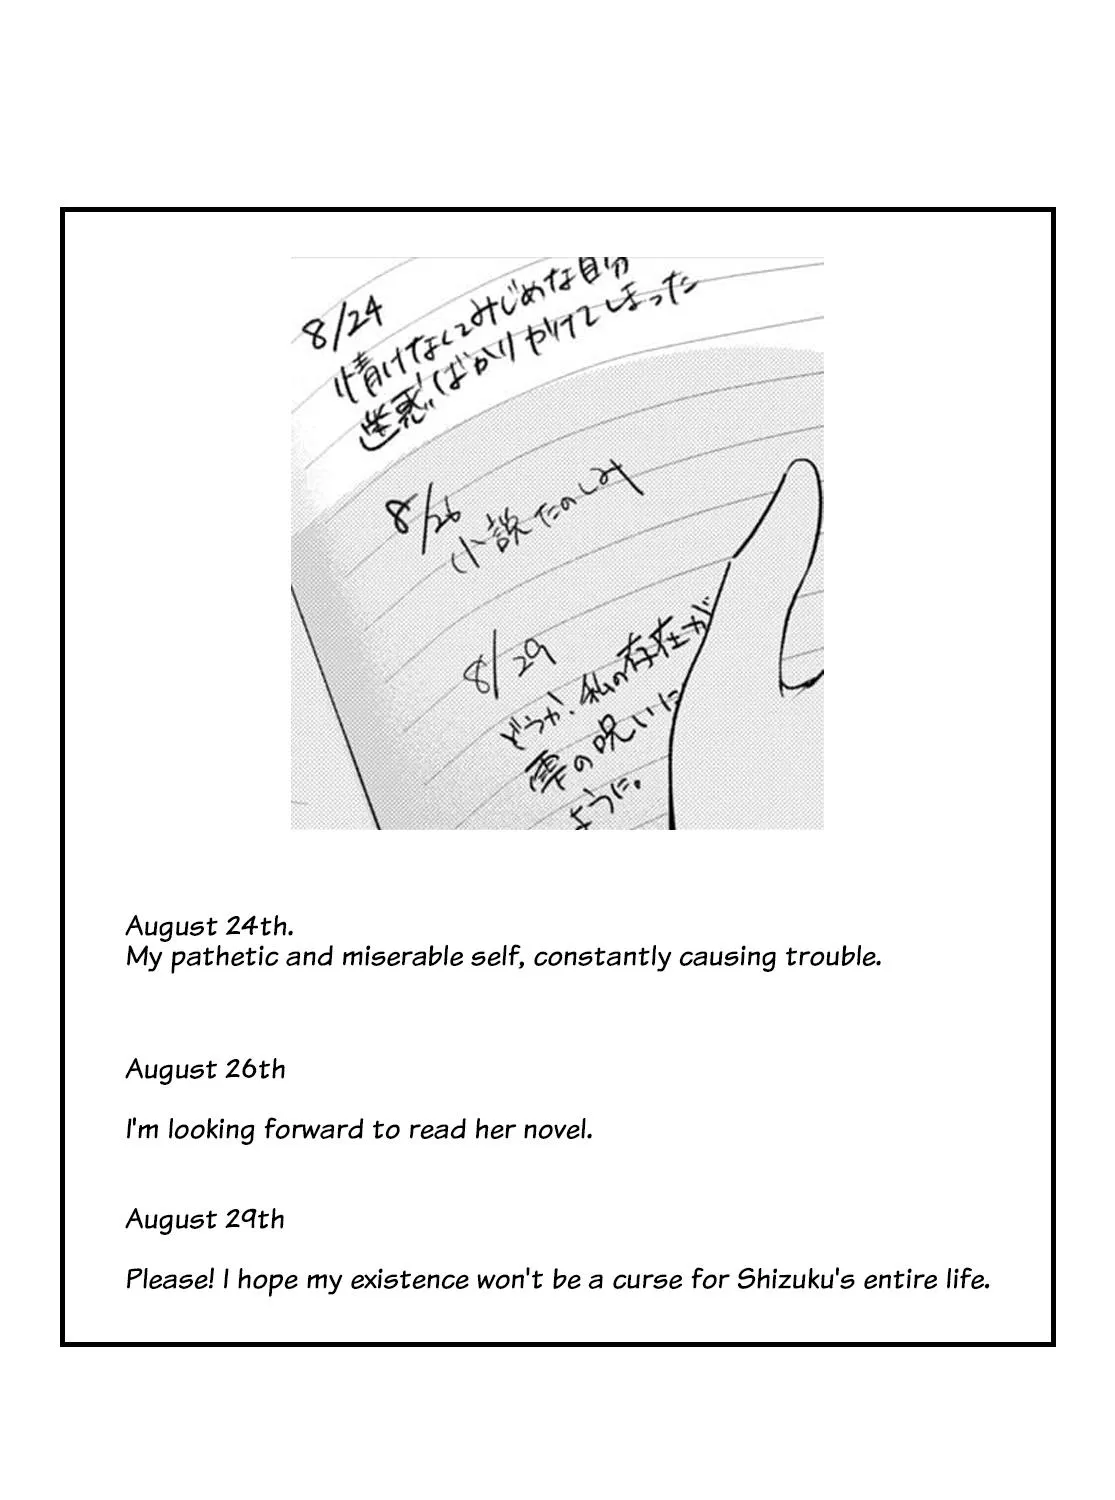 8/24
情けなくてみじめな自分
迷惑ばかりかけてしまった
8/26
小説たのしみ
8/29
どうか、私の存在が
雫の呪いに
ように。
August 24th.
My pathetic and miserable self, constantly causing trouble.
August 26th
I'm looking forward to read her novel.
August 29th
Please! I hope my existence won't be a curse for Shizuku's entire life.